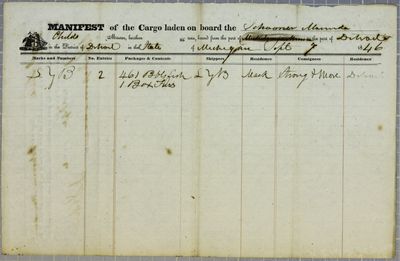 MANIFEST of the Cargo laden on board the Schooner
Childs Master, burthen tons, bound from the port of to the port of Detroit
in the District of Detroit in the State of Michigan Sept 7 1846
Marks and Numbers No. Entries Packages & Contents Shippers Residence Consignees Residence
L Y B 2 461 Bbls fish L Y B Mack Strong & More Detroit
1 Box Furs